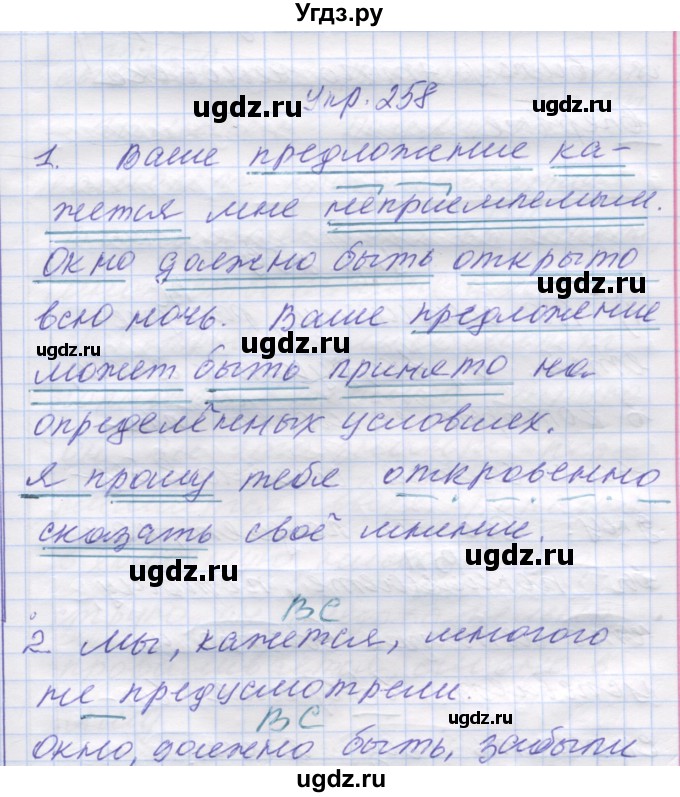 Угдз.ру
Упр. 258
ugdz.ru ugdz.ru
1. Ваше предложение ка-
жется мне неприемлемым.
Окно должно быть открыто
ugdz.ru
всю ночь. Ваше предложение
ugdz.ru ugdz.ru
может быть принято на
определённых условиях.
ugdz.ru ugdz.ru
Я прошу тебя откровенно
сказать своё мнение.
ugdz.ru ugdz.ru
ВС
2. Мы, кажется, многого
не предусмотрели.
ВС
ugdz.ru ugdz.ru
Окно, должно быть, забыли
ugdz.ru